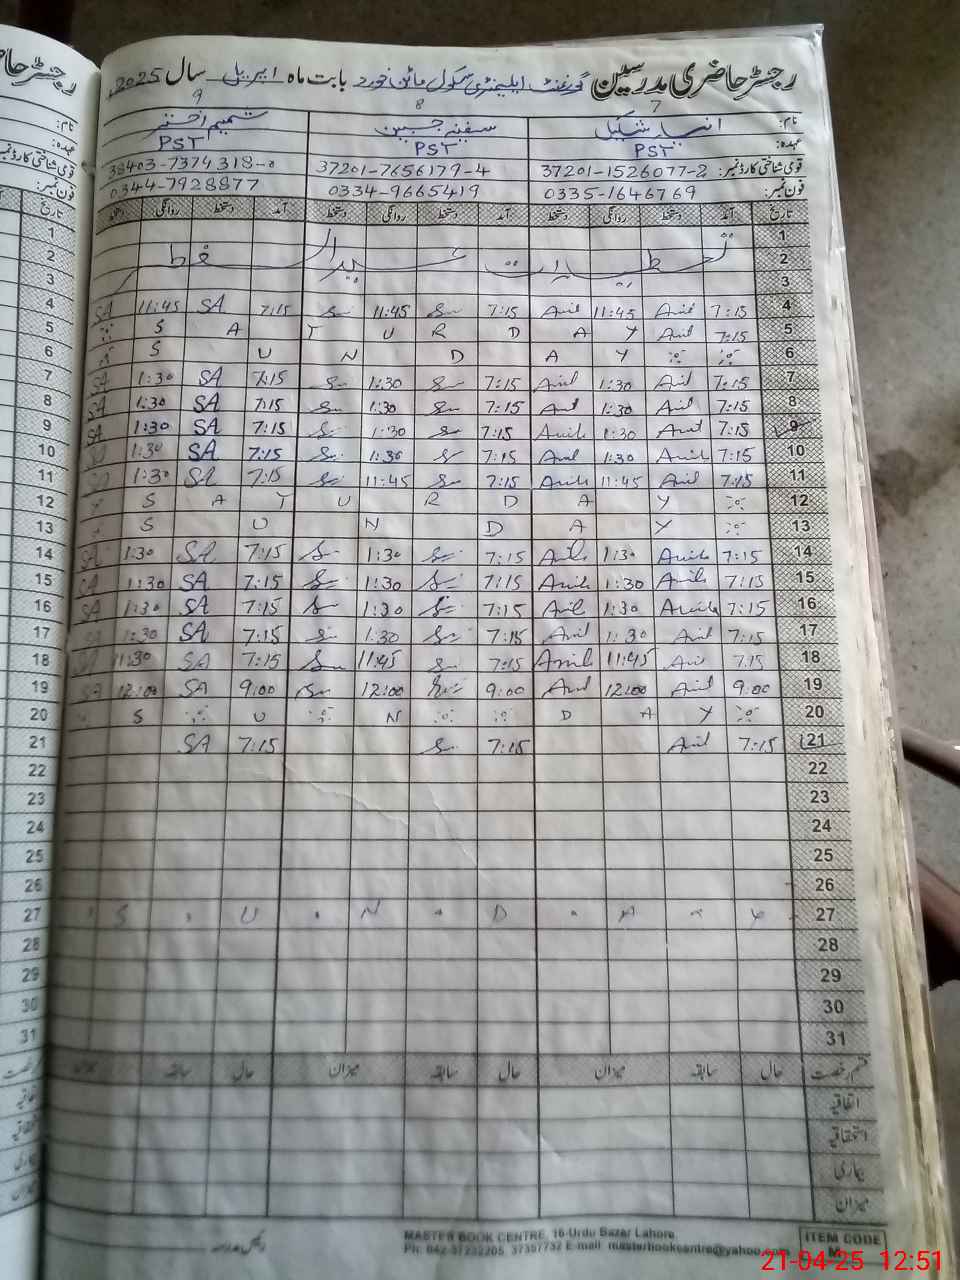 رجسٹر حاضری مدرسین گورنمنٹ ایلیمنٹری سکول بابت ماہ اپریل سال 2025
7 8 9
نام: انیلہ شکیل سفینہ جبین شمیم اختر
عہدہ: PST PST PST
قومی شناختی کارڈ نمبر: 37201-1526077-2 37201-7656179-4 38403-7374318-0
فون نمبر: 0335-1646769 0334-9665419 0344-7928877
تاریخ آمد دستخط روانگی دستخط آمد دستخط روانگی دستخط آمد دستخط روانگی دستخط
1
2 تعطیلات عید الفطر
3
4 7:15 Anil 11:45 Anil 7:15 S 11:45 S 7:15 SA 11:45 SA
5 7:15 Anil S A T U R D A Y
6 S U N D A Y
7 7:15 Anil 1:30 Anil 7:15 S 1:30 S 7:15 SA 1:30 SA
8 7:15 Anil 1:30 Anil 7:15 S 1:30 S 7:15 SA 1:30 SA
9 7:15 Anil 1:30 Anila 7:15 S 1:30 S 7:15 SA 1:30 SA
10 7:15 Anila 1:30 Anil 7:15 S 1:30 S 7:15 SA 1:30 SA
11 7:15 Anil 11:45 Anila 7:15 S 11:45 S 7:15 SA 1:30 SA
12 S A T U R D A Y
13 S U N D A Y
14 7:15 Anila 1:30 Anila 7:15 S 1:30 S 7:15 SA 1:30 SA
15 7:15 Anila 1:30 Anila 7:15 S 1:30 S 7:15 SA 1:30 SA
16 7:15 Anila 1:30 Anil 7:15 S 1:30 S 7:15 SA 1:30 SA
17 7:15 Anil 1:30 Anil 7:15 S 1:30 S 7:15 SA 1:30 SA
18 7:15 Anil 11:45 Anil 7:15 S 11:45 S 7:15 SA 11:30 SA
19 9:00 Anil 12:00 Anil 9:00 S 12:00 S 9:00 SA 12:00 SA
20 S U N D A Y
21 7:15 Anil 7:15 S 7:15 SA
22
23
24
25
26
27 S U N D A Y
28
29
30
31
قسم رخصت حال سابقہ میزان حال سابقہ میزان حال سابقہ میزان
اتفاقیہ
استحقاقیہ
بیماری
میزان
رئیس مدرسہ
MASTER BOOK CENTRE, 16-Urdu Bazar Lahore
Ph: 042-37232205, 37357732 E-mail: masterbookcentre@yahoo.com
ITEM CODE
21-04-25 12:51